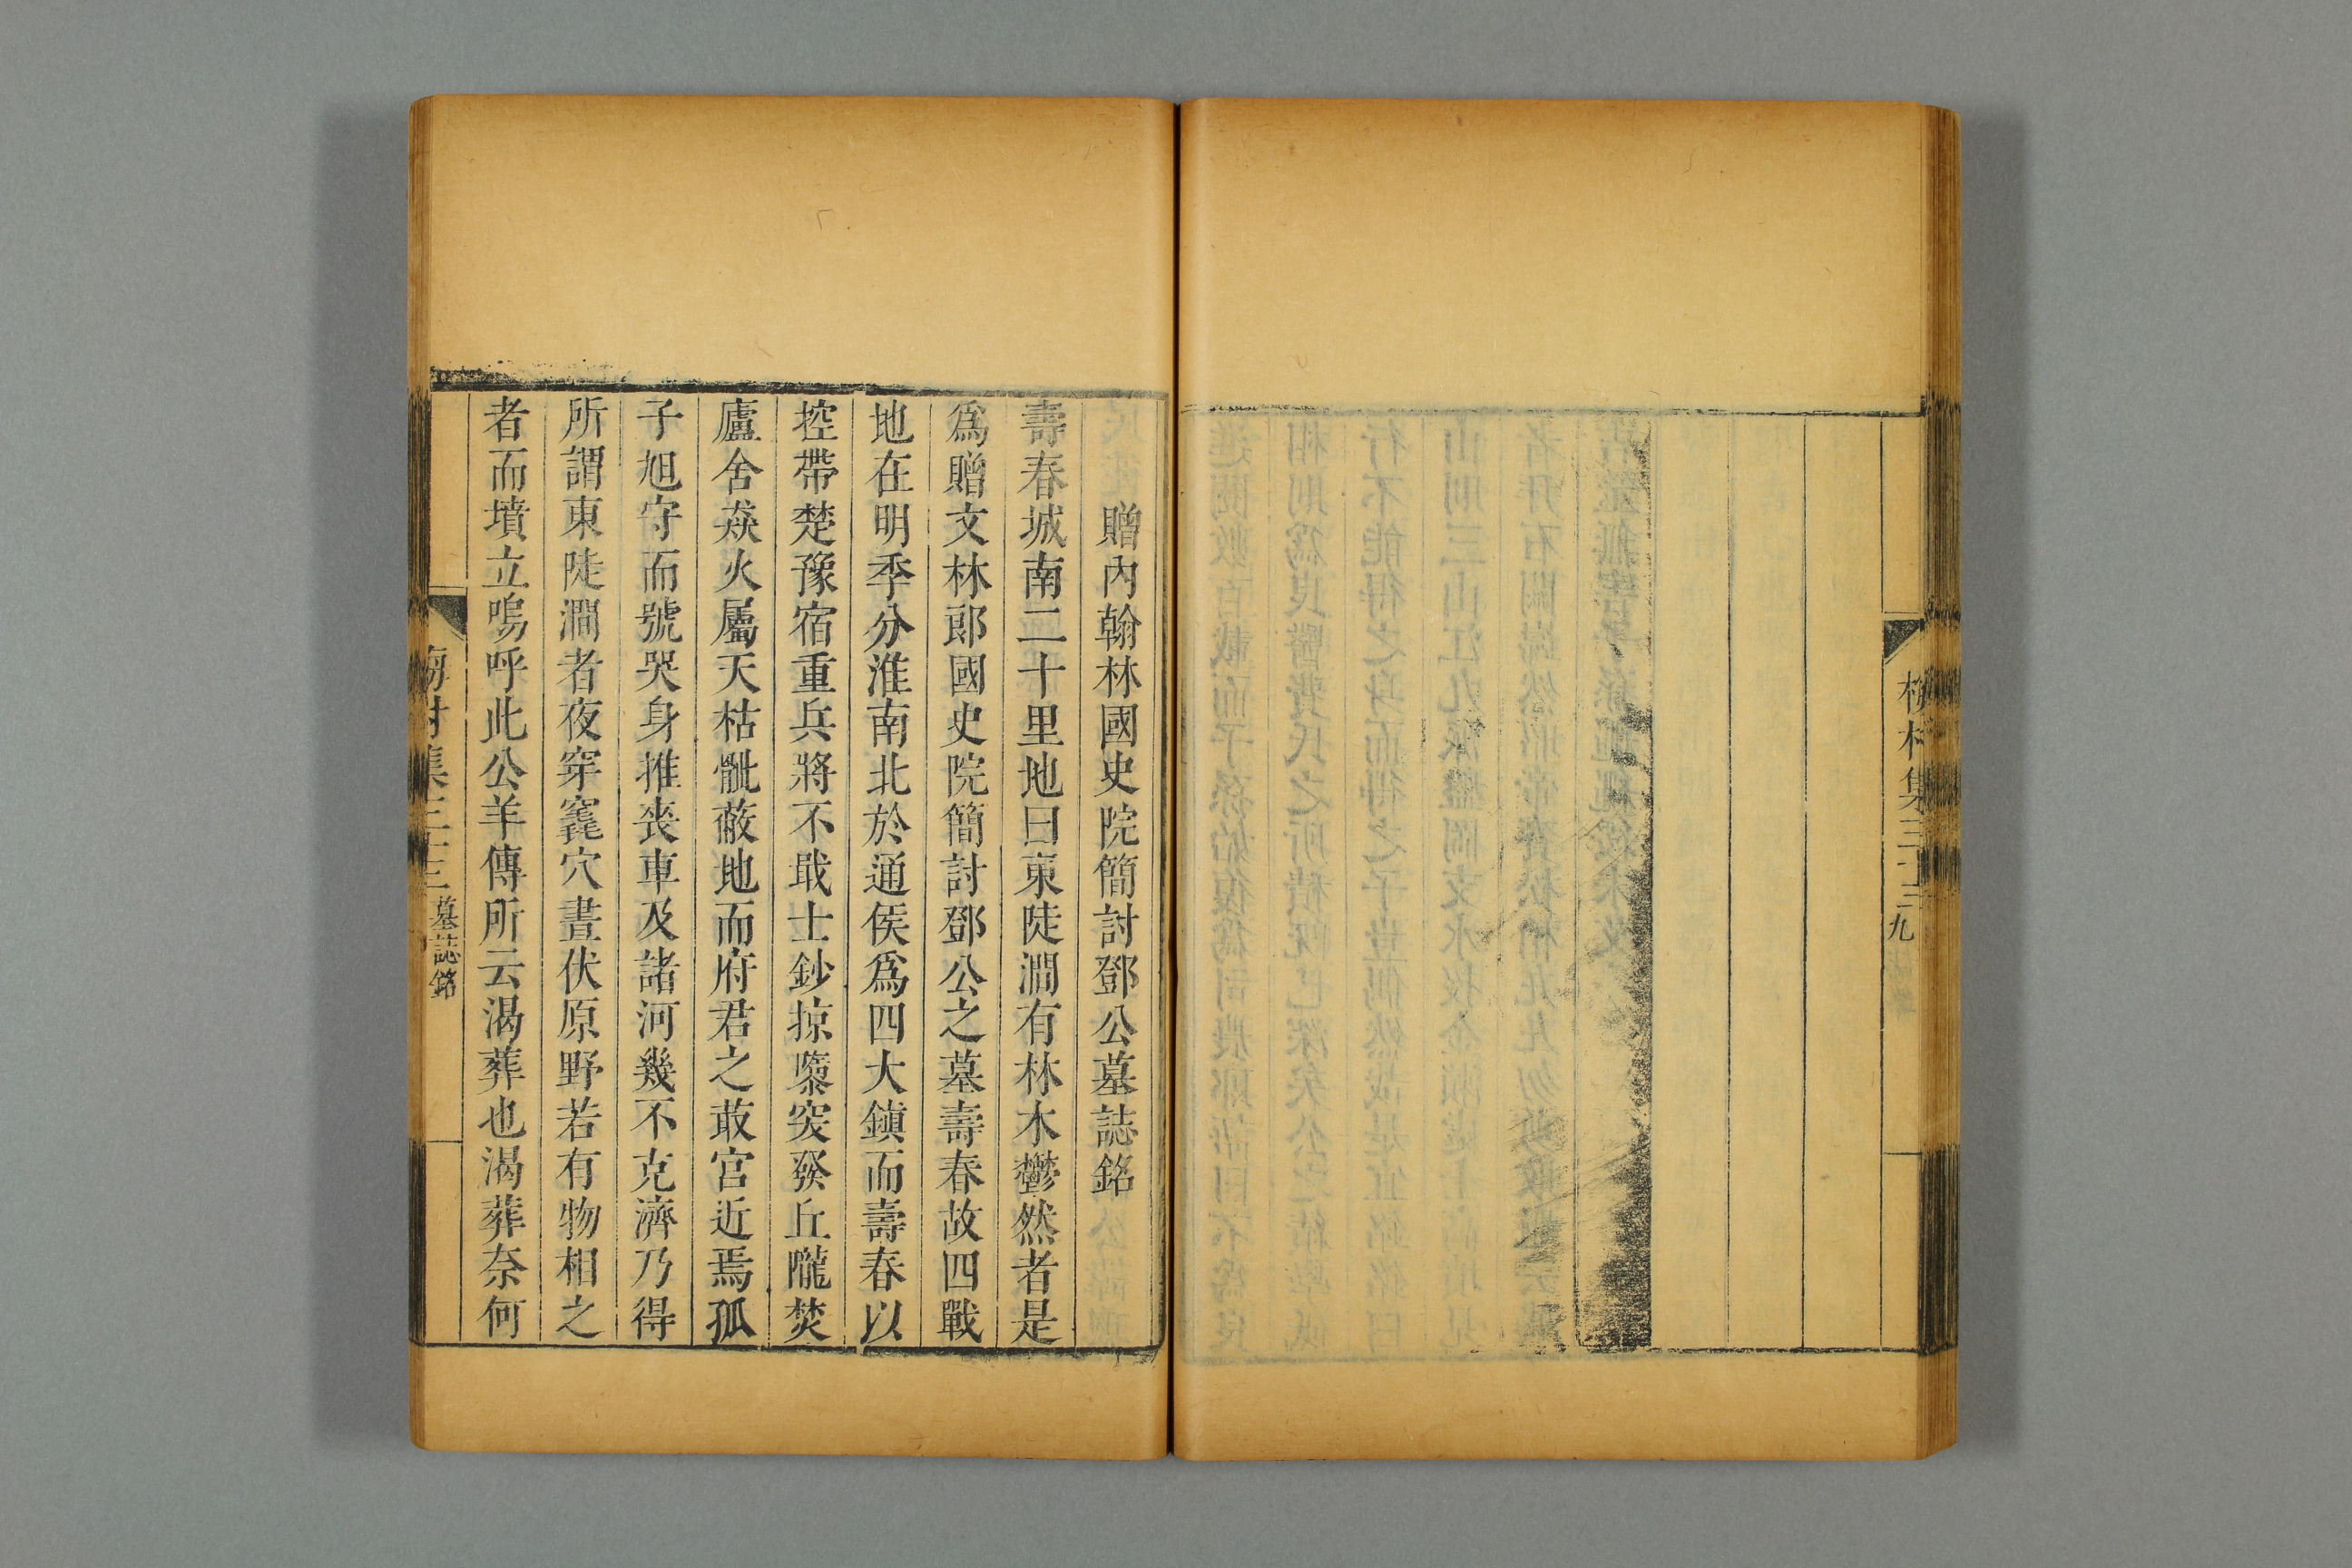 梅村集三十三
九
贈內翰林國史院簡討鄧公墓誌銘
壽春城南二十里地曰東陡澗有林木鬱然者是
爲贈文林郎國史院簡討鄧公之墓壽春故四戰
地在明季分淮南北於通侯爲四大鎮而壽春以
控帶楚豫宿重兵將不戢士鈔掠隳突發丘隴焚
廬舍猋火屬天枯骴蔽地而府君之菆宮近焉孤
子旭守而號哭身推喪車及諸河幾不克濟乃得
所謂東陡澗者夜穿窀穴晝伏原野若有物相之
者而墳立嗚呼此公羊傳所云渴葬也渴葬奈何
梅村集三十三
墓誌銘